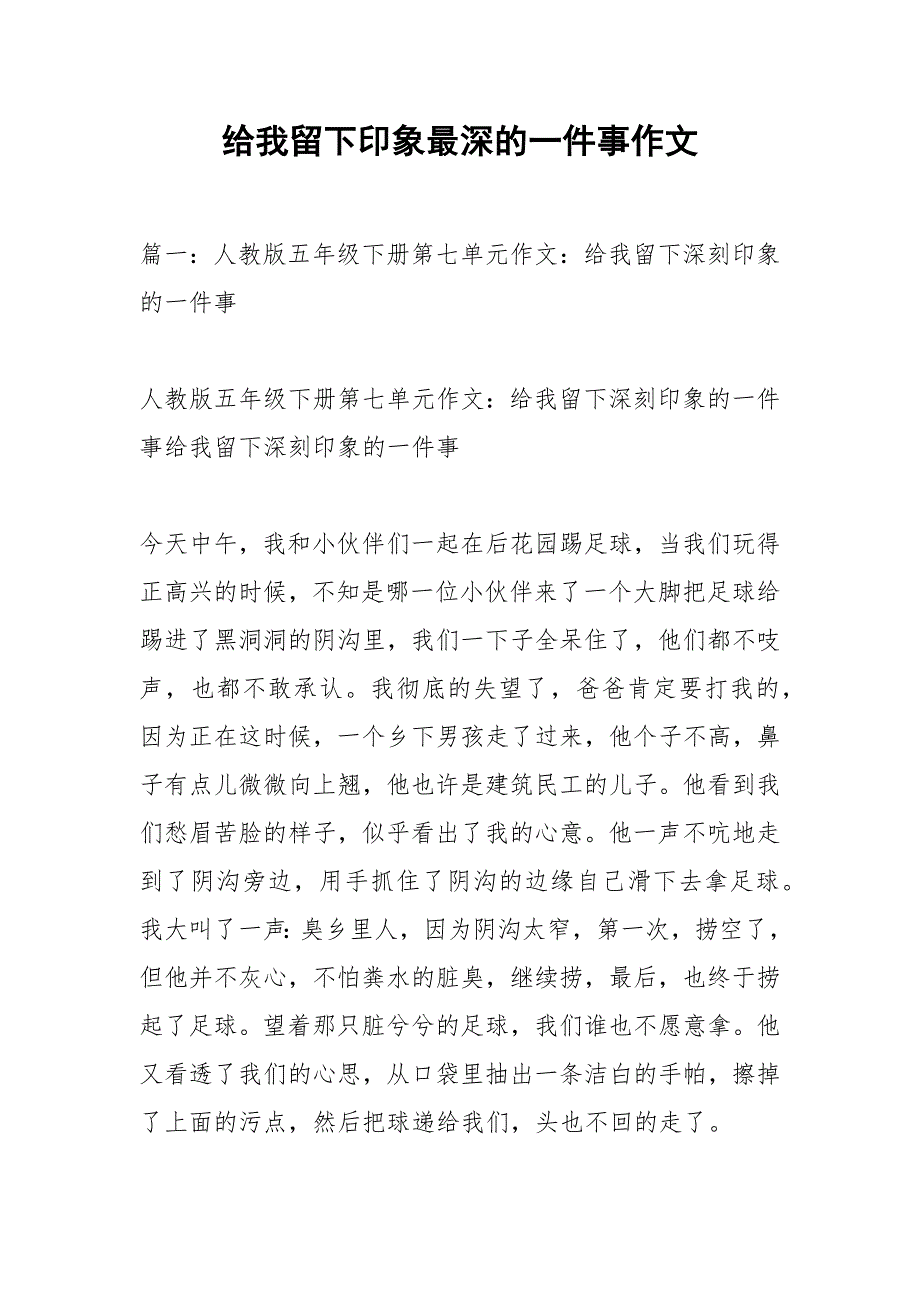 给我留下印象最深的一件事作文
篇一：人教版五年级下册第七单元作文：给我留下深刻印象
的一件事
人教版五年级下册第七单元作文：给我留下深刻印象的一件
事给我留下深刻印象的一件事
今天中午，我和小伙伴们一起在后花园踢足球，当我们玩得
正高兴的时候，不知是哪一位小伙伴来了一个大脚把足球给
踢进了黑洞洞的阴沟里，我们一下子全呆住了，他们都不吱
声，也都不敢承认。我彻底的失望了，爸爸肯定要打我的，
因为正在这时候，一个乡下男孩走了过来，他个子不高，鼻
子有点儿微微向上翘，他也许是建筑民工的儿子。他看到我
们愁眉苦脸的样子，似乎看出了我的心意。他一声不吭地走
到了阴沟旁边，用手抓住了阴沟的边缘自己滑下去拿足球。
我大叫了一声：臭乡里人，因为阴沟太窄，第一次，捞空了，
但他并不灰心，不怕粪水的脏臭，继续捞，最后，也终于捞
起了足球。望着那只脏兮兮的足球，我们谁也不愿意拿。他
又看透了我们的心思，从口袋里抽出一条洁白的手帕，擦掉
了上面的污点，然后把球递给我们，头也不回的走了。